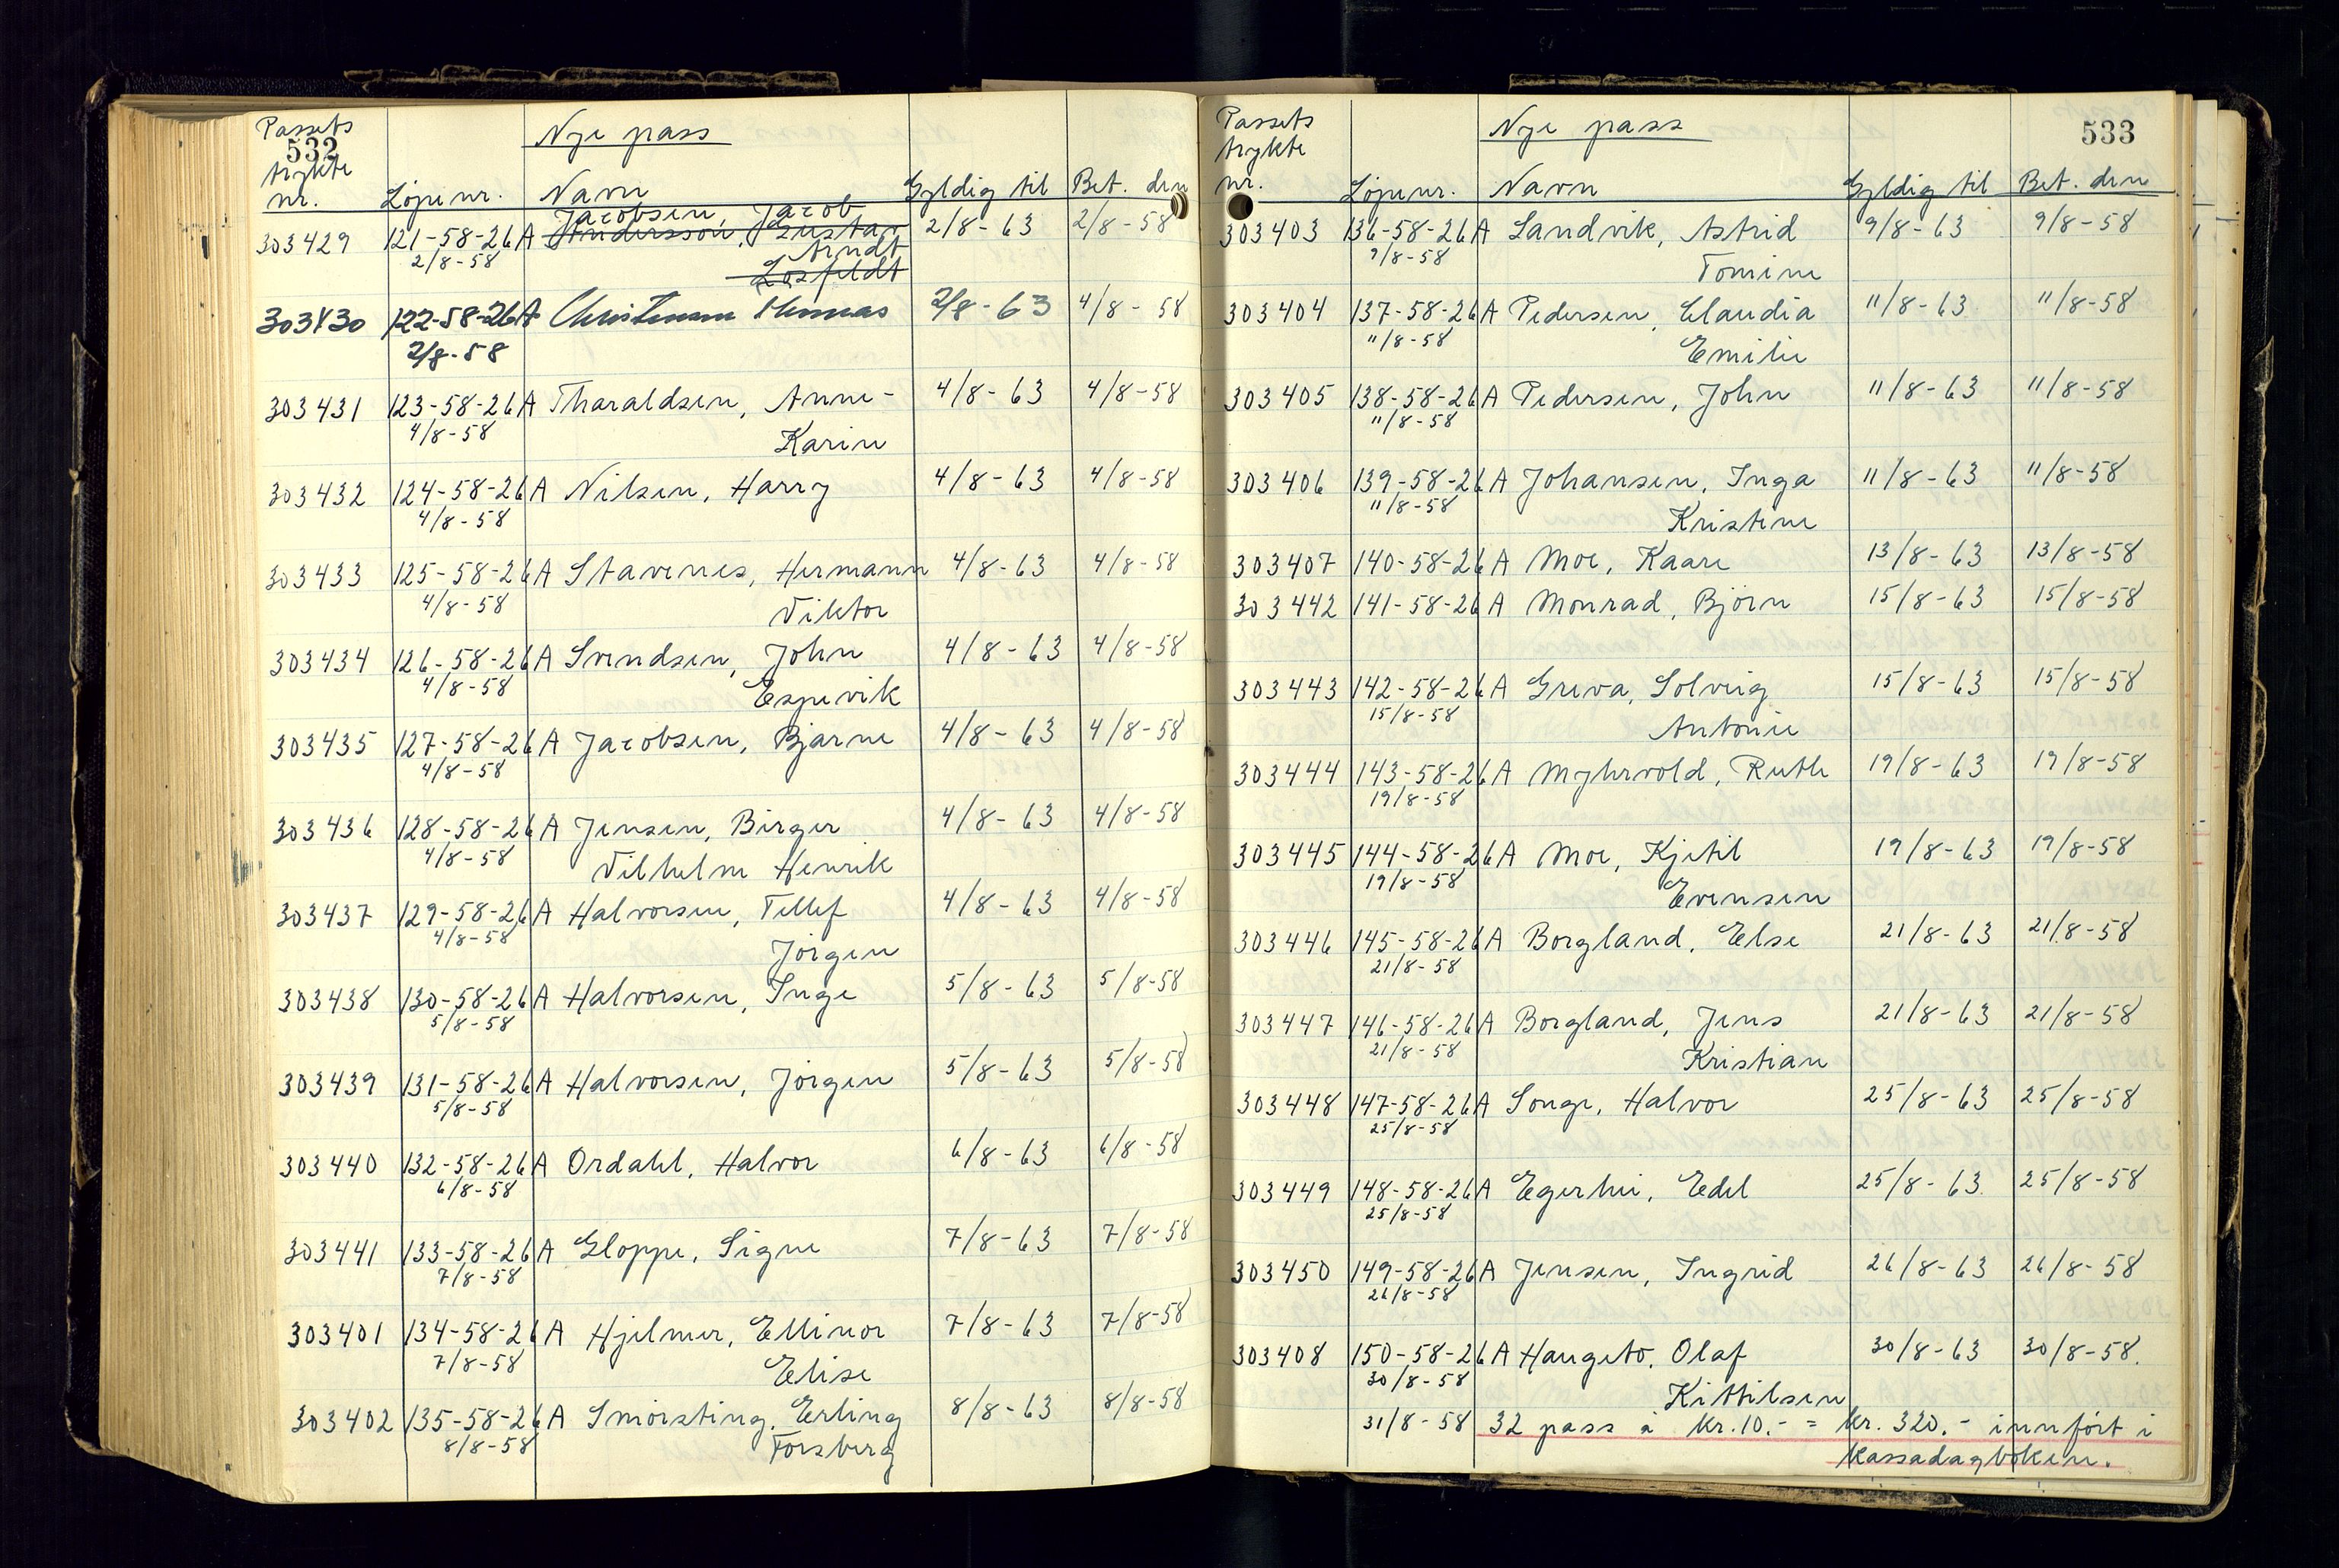 Passets
trykte
nr.
532
Nye pass
Löpenr. Navn Gyldig til Bet. den
303429 121-58-26A Jacobsen, Jacob 2/8-63 2/8-58
Andersson, Gustav
2/8-58 Arndt
Losfeldt
303430 122-58-26A Christensen Thomas 2/8-63 4/8-58
2/8-58
303431 123-58-26A Tharaldsen, Anne- 4/8-63 4/8-58
4/8-58 Karin
303432 124-58-26A Nilsen, Harry 4/8-63 4/8-58
4/8-58
303433 125-58-26A Stavenes, Hermann 4/8-63 4/8-58
4/8-58 Viktor
303434 126-58-26A Svendsen, John 4/8-63 4/8-58
4/8-58 Espevik
303435 127-58-26A Jacobsen, Bjarne 4/8-63 4/8-58
4/8-58
303436 128-58-26A Jensen, Birger 4/8-63 4/8-58
4/8-58 Vilhelm Henrik
303437 129-58-26A Halvorsen, Tellef 4/8-63 4/8-58
4/8-58 Jörgen
303438 130-58-26A Halvorsen, Inge 5/8-63 5/8-58
5/8-58
303439 131-58-26A Halvorsen, Jörgen 5/8-63 5/8-58
5/8-58
303440 132-58-26A Ordahl, Halvor 6/8-63 6/8-58
6/8-58
303441 133-58-26A Gloppe, Signe 7/8-63 7/8-58
7/8-58
303401 134-58-26A Hjelmer, Ellinor 7/8-63 7/8-58
7/8-58 Elise
303402 135-58-26A Smörsting, Erling 8/8-63 8/8-58
8/8-58 Forsberg
Passets
trykte
nr.
Nye pass
533
Löpenr. Navn Gyldig til Bet. den
303403 136-58-26A Landvik, Astrid 9/8-63 9/8-58
9/8-58 Tomine
303404 137-58-26A Pedersen, Claudia 11/8-63 11/8-58
11/8-58 Emilie
303405 138-58-26A Pedersen, John 11/8-63 11/8-58
11/8-58
303406 139-58-26A Johansen, Inga 11/8-63 11/8-58
11/8-58 Kristine
303407 140-58-26A Moe, Kaare 13/8-63 13/8-58
303442 141-58-26A Monrad, Björn 15/8-63 15/8-58
303443 142-58-26A Greva, Solveig 15/8-63 15/8-58
15/8-58 Antonie
303444 143-58-26A Myhrvold, Ruth 19/8-63 19/8-58
19/8-58
303445 144-58-26A Moe, Kjetil 19/8-63 19/8-58
19/8-58 Evensen
303446 145-58-26A Borgland, Else 21/8-63 21/8-58
21/8-58
303447 146-58-26A Borgland, Jens 21/8-63 21/8-58
21/8-58 Kristian
303448 147-58-26A Songe, Halvor 25/8-63 25/8-58
25/8-58
303449 148-58-26A Egerhei, Edel 25/8-63 25/8-58
25/8-58
303450 149-58-26A Jensen, Ingrid 26/8-63 26/8-58
26/8-58
303408 150-58-26A Haugeto, Olaf 30/8-63 30/8-58.
30/8-58 Kittilsen
31/8-58 32 pass à kr. 10.- = kr. 320.- innfört i
kassadagboken.